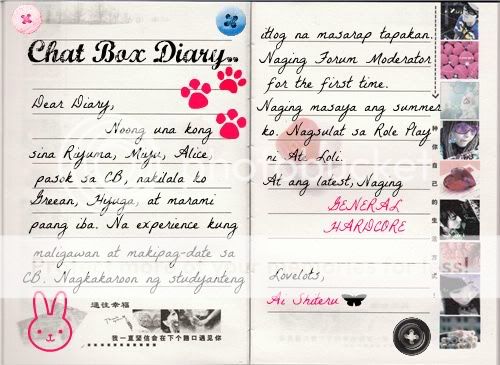 Chat Box Diary..
Dear Diary,
Noong una kong
sina Riyuma, Muyu, Alice,
pasok sa CB, nakilala ko
Greean, Hyuga, at marami
paang iba. Na experience kung
maligawan at makipag-date sa
CB. Nagkakaroon ng studyanteng
通往幸福
我一直坚信会在下个路口遇见你
itlog na masarap tapakan.
Naging Forum Moderator
for the first time.
Naging masaya ang summer
ko. Nagsulat sa Role Play
ni At Loli.
At ang latest, Naging
GENERAL
HARDCORE
Lovelots,
Ai Shiteru
种你自己的生活方式